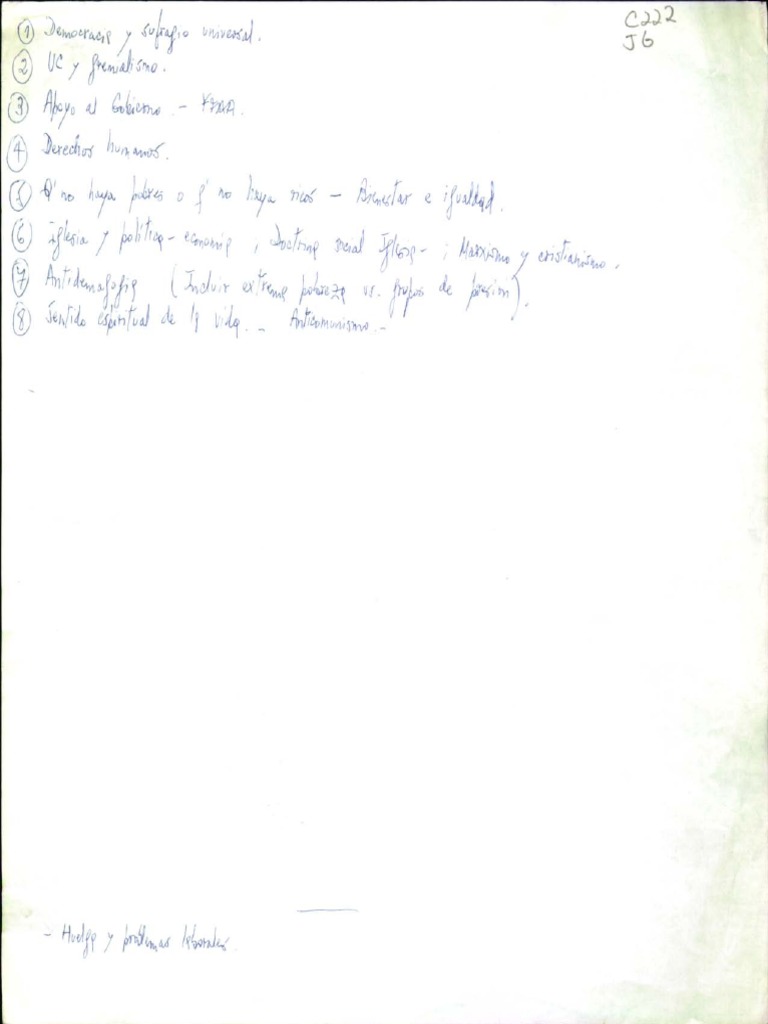 C222
J6
① Democracia y sufragio universal.
② UC y gremialismo.
③ Apoyo al Gobierno. -
④ Derechos humanos.
⑤ Q' no haya pobres o q' no haya ricos - Bienestar e igualdad.
⑥ Iglesia y política - economía ; Doctrina social Iglesia - ; Marxismo y cristianismo.
⑦ Antidemagogia (Incluir extrema pobreza vs. grupos de presión).
⑧ Sentido espiritual de la vida. - Anticomunismo. -
- Huelga y problemas laborales.